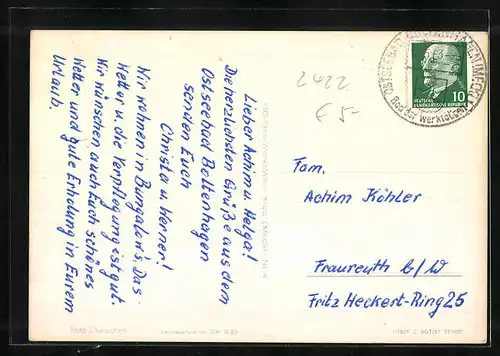 Lieber Achim u. Helga!
Die herzlichsten Grüße aus dem
Ostseebad Boltenhagen
senden Euch
Christa u. Werner!
Wir wohnen in Bungalow's. Das
Wetter u. die Verpflegung ist gut.
Wir wünschen auch Euch schönes
Wetter und gute Erholung in Eurem
Urlaub.
2422
€ 5-
OSTSEEBAD BOLTENHAGEN
Bad der Werktätigen
10
DEUTSCHE
DEMOKRATISCHE REPUBLIK
Fam.
Achim Köhler
Fraureuth b/W
Fritz Heckert-Ring 25